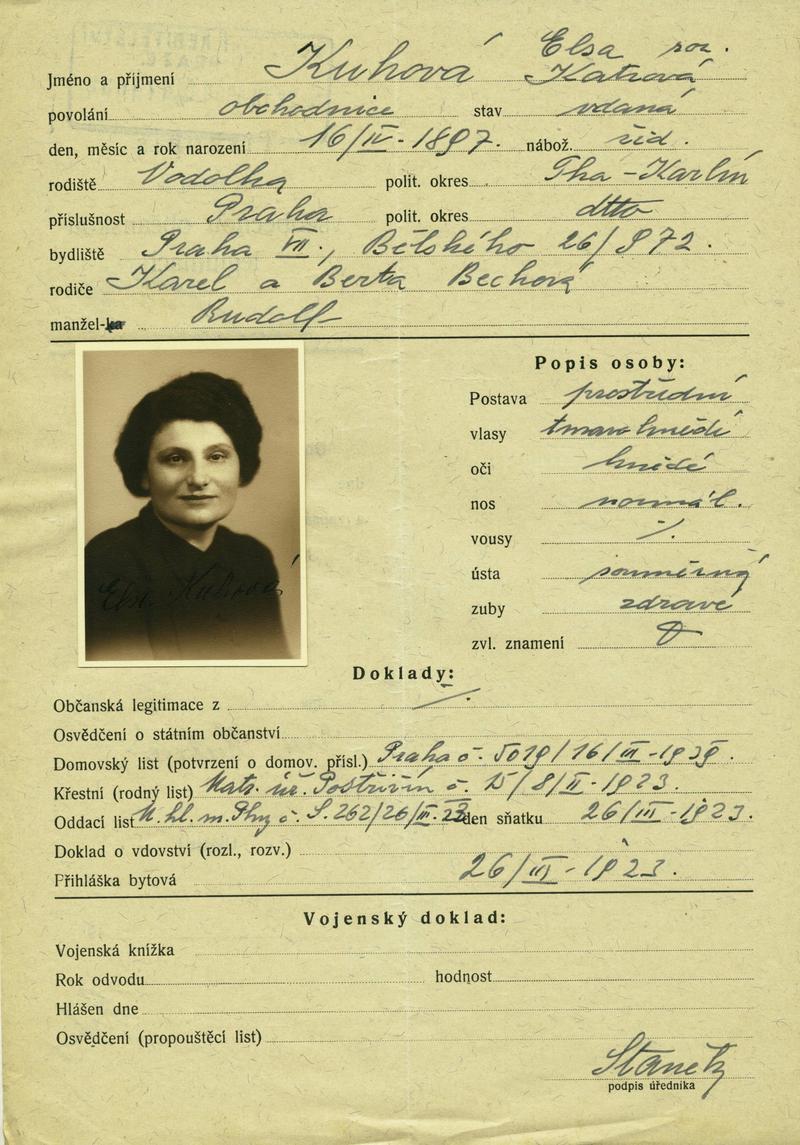 Jméno a příjmení Kuhová Elsa roz. Katzová
povolání obchodnice stav vdaná
den, měsíc a rok narození 16/IV - 1897. nábož. žid.
rodiště Vodolka polit. okres Pha - Karlín
příslušnost Praha polit. okres dtto
bydliště Praha VII., Bělského 26/872.
rodiče Karel a Berta Bechová
manžel-ka Rudolf
Popis osoby:
Postava prostřední
vlasy tmavohnědé
oči hnědé
nos normál.
vousy ·/.
ústa souměrný
zuby zdravé
zvl. znamení
Elsa Kuhová
Doklady:
Občanská legitimace z ·/.
Osvědčení o státním občanství
Domovský list (potvrzení o domov. přísl.) Praha č. 5019/16/III - 1939.
Křestní (rodný list) Matr. úř. Postřižín č. 15/8/II - 1923.
Oddací list M. hl. m. Phy č. S. 262/26/III. 23 den sňatku 26/III - 1923.
Doklad o vdovství (rozl., rozv.)
Přihláška bytová 26/III - 1923.
Vojenský doklad:
Vojenská knížka
Rok odvodu hodnost
Hlášen dne
Osvědčení (propouštěcí list)
podpis úředníka